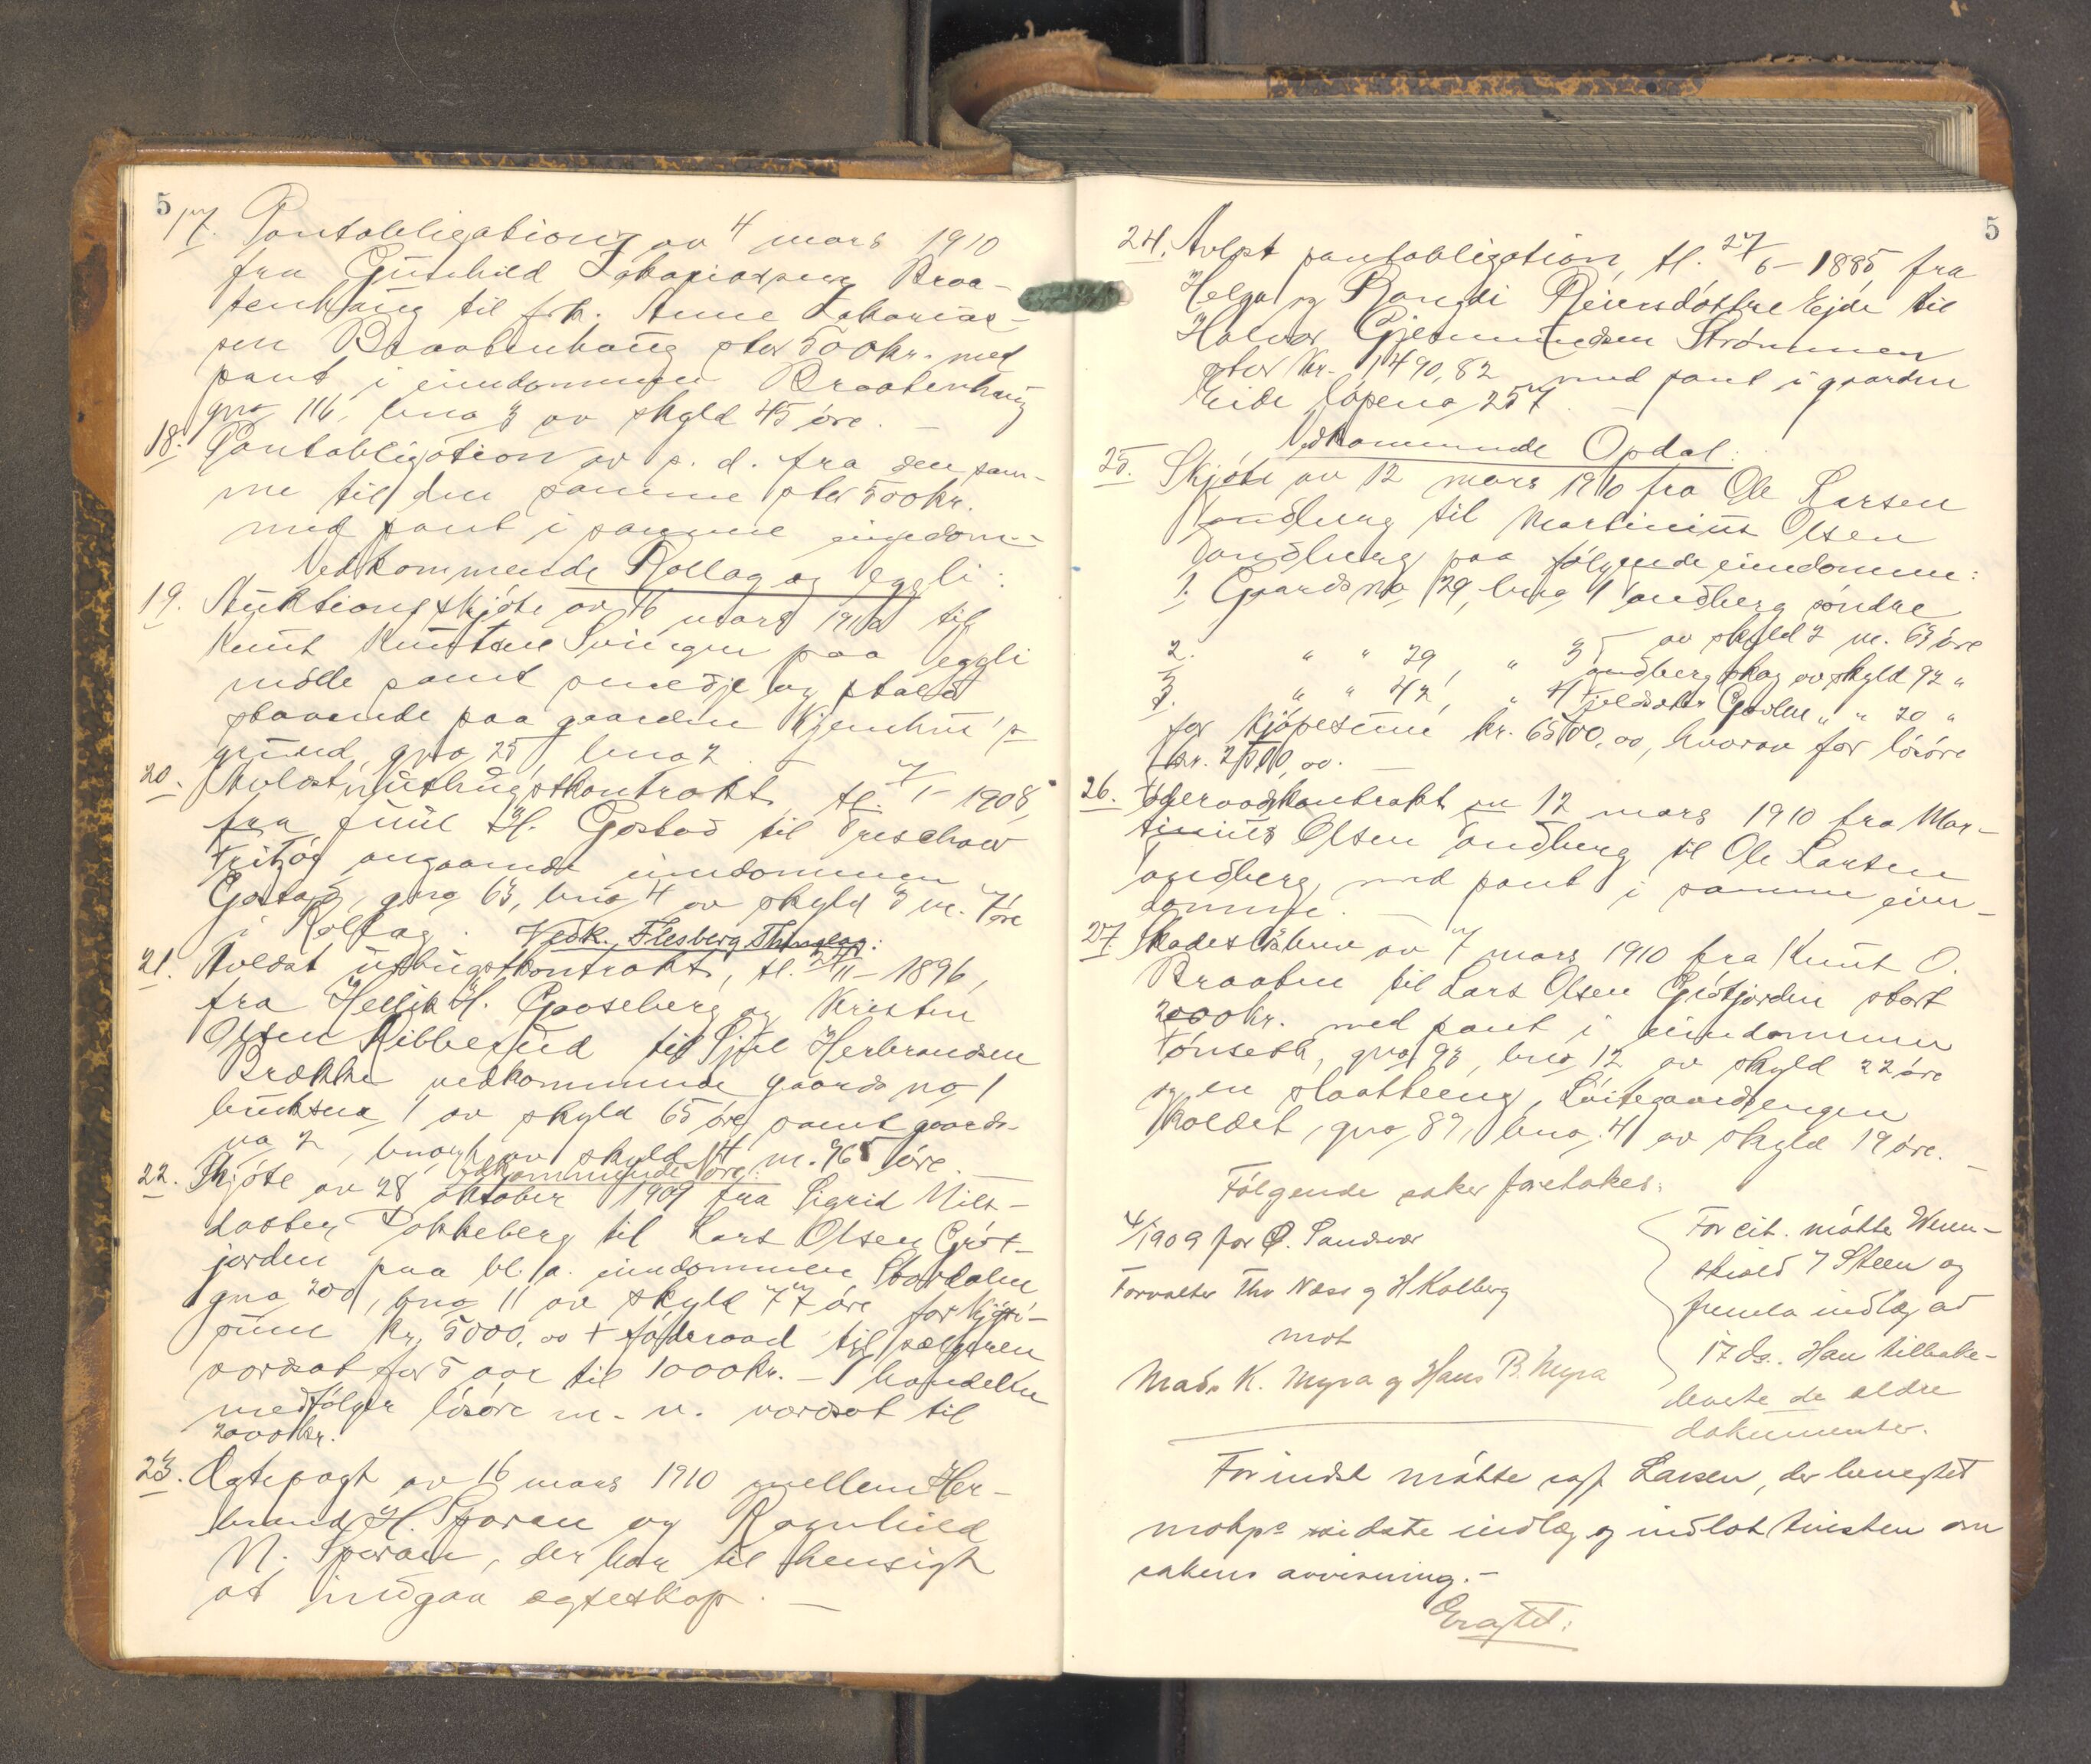 5
17. Pantobligation av 4 mars 1910
fra Gunhild Zakariasdsen Braa-
tenhaug til frk. Anne Zakarias-
sen Braatenhaug stor 500 kr. med
pant i eiendommen Braatenhaug
gno 116, bno 3 av skyld 45 öre. —
18. Pantobligation av s. d. fra den sam-
me til den samme stor 500 kr.
med pant i samme eiendom. -
Vedkommende Rollag og Veggli:
19. Auktionsskjöte av 16 mars 1910 til
Knut Knutsen Svingen paa Veggli
mölle samt smedje og stald
staaende paa gaarden Kjemhus's
grund, gno 25, bno 2. —
20. Avlöst uthugstkontrakt, tl. 7/1 - 1908,
fra Juul H. Gostad til Treschow
Fritzöe angaaende eiendommen
Gostad, gno 63, bno 4 av skyld 3 m. 7 öre
i Rollag. Vedk. Flesberg Thinglag:
21. Avlöst uthugstkontrakt, tl. 24/11 - 1896,
fra Hellik H. Gaaseberg og Kristen
Olsen Ribberud til Sjul Herbrandsen
Brække vedkommende gaards no 1
bruksno 1 av skyld 65 öre samt gaards-
no 2, bno 1 av skyld 14 m. 76 öre.
Vedkommende Öre:
22. Skjöte av 28 oktober 1909 fra Sigrid Nils-
datter Dokkeberg til Lars Olsen Gröt-
jorden paa bl. a. eiendommen Stordalen
gno 200, bno 11 av skyld 77 öre for kjöpe-
sum kr. 5000,00 + föderaad til sælgeren
værdsat for 5 aar til 1000 kr. - I handelen
medfölger lösöre m. v. værdsat til
2000 kr.
23. Ægtepagt av 16 mars 1910 mellem Her-
brand H. Sporan og Ragnhild
N. Sporan, der har til hensigt
at indgaa egteskap. —
5
24. Avlöst pantobligation, tl. 27/6 - 1885, fra
Helga og Rangdi Reiersdöttre Ejde til
Halvor Gjermundsen Strömmen
stor Kr. 1490,82 med pant i gaarden
Eide löpeno 257. —
Vedkommende Opdal:
25. Skjöte av 12 mars 1910 fra Ole Larsen
Tandberg til Martinius Olsen
Tandberg paa fölgende eiendomme:
1. Gaards no 29, bno 1 Tandberg söndre
av skyld 2 m. 63 öre
2. " " 29, " 35 Tandberg skog av skyld 92 "
3. " " 42, " 4 Fjeldsæter Gvalen " " 20 "
for kjöpesum kr. 6500,00, hvorav for lösöre
kr. 2000,00. —
26. Föderaadskontrakt av 12 mars 1910 fra Mar-
tinius Olsen Tandberg til Ole Larsen
Tandberg, med pant i samme eien-
domme. —
27. Skadeslösbrev av 7 mars 1910 fra Knut O.
Braaten til Lars Olsen Grötjorden stort
2000 kr. med pant i eiendommen
Tönseth, gno 93, bno 12 av skyld 22 öre
og en slaatteeng, Löitegaardsengen
kaldet, gno 89, bno 41 av skyld 19 öre. —
Fölgende saker foretokes:
4/1909 for O. Sandsvær
Forvalter Thv Næss og H Kolberg
mot
Mads K. Myra og Hans B. Myra
For cit. mötte Wenn-
skiold & Steen og
fremla indlæg av
17 ds. Han tilbake-
leverte de ældre
dokumenter.
For indst mötte sagf. Larsen, der benegtet
motps sidste indlæg og indlot tvisten om
sakens avvisning. -
Eragtet: